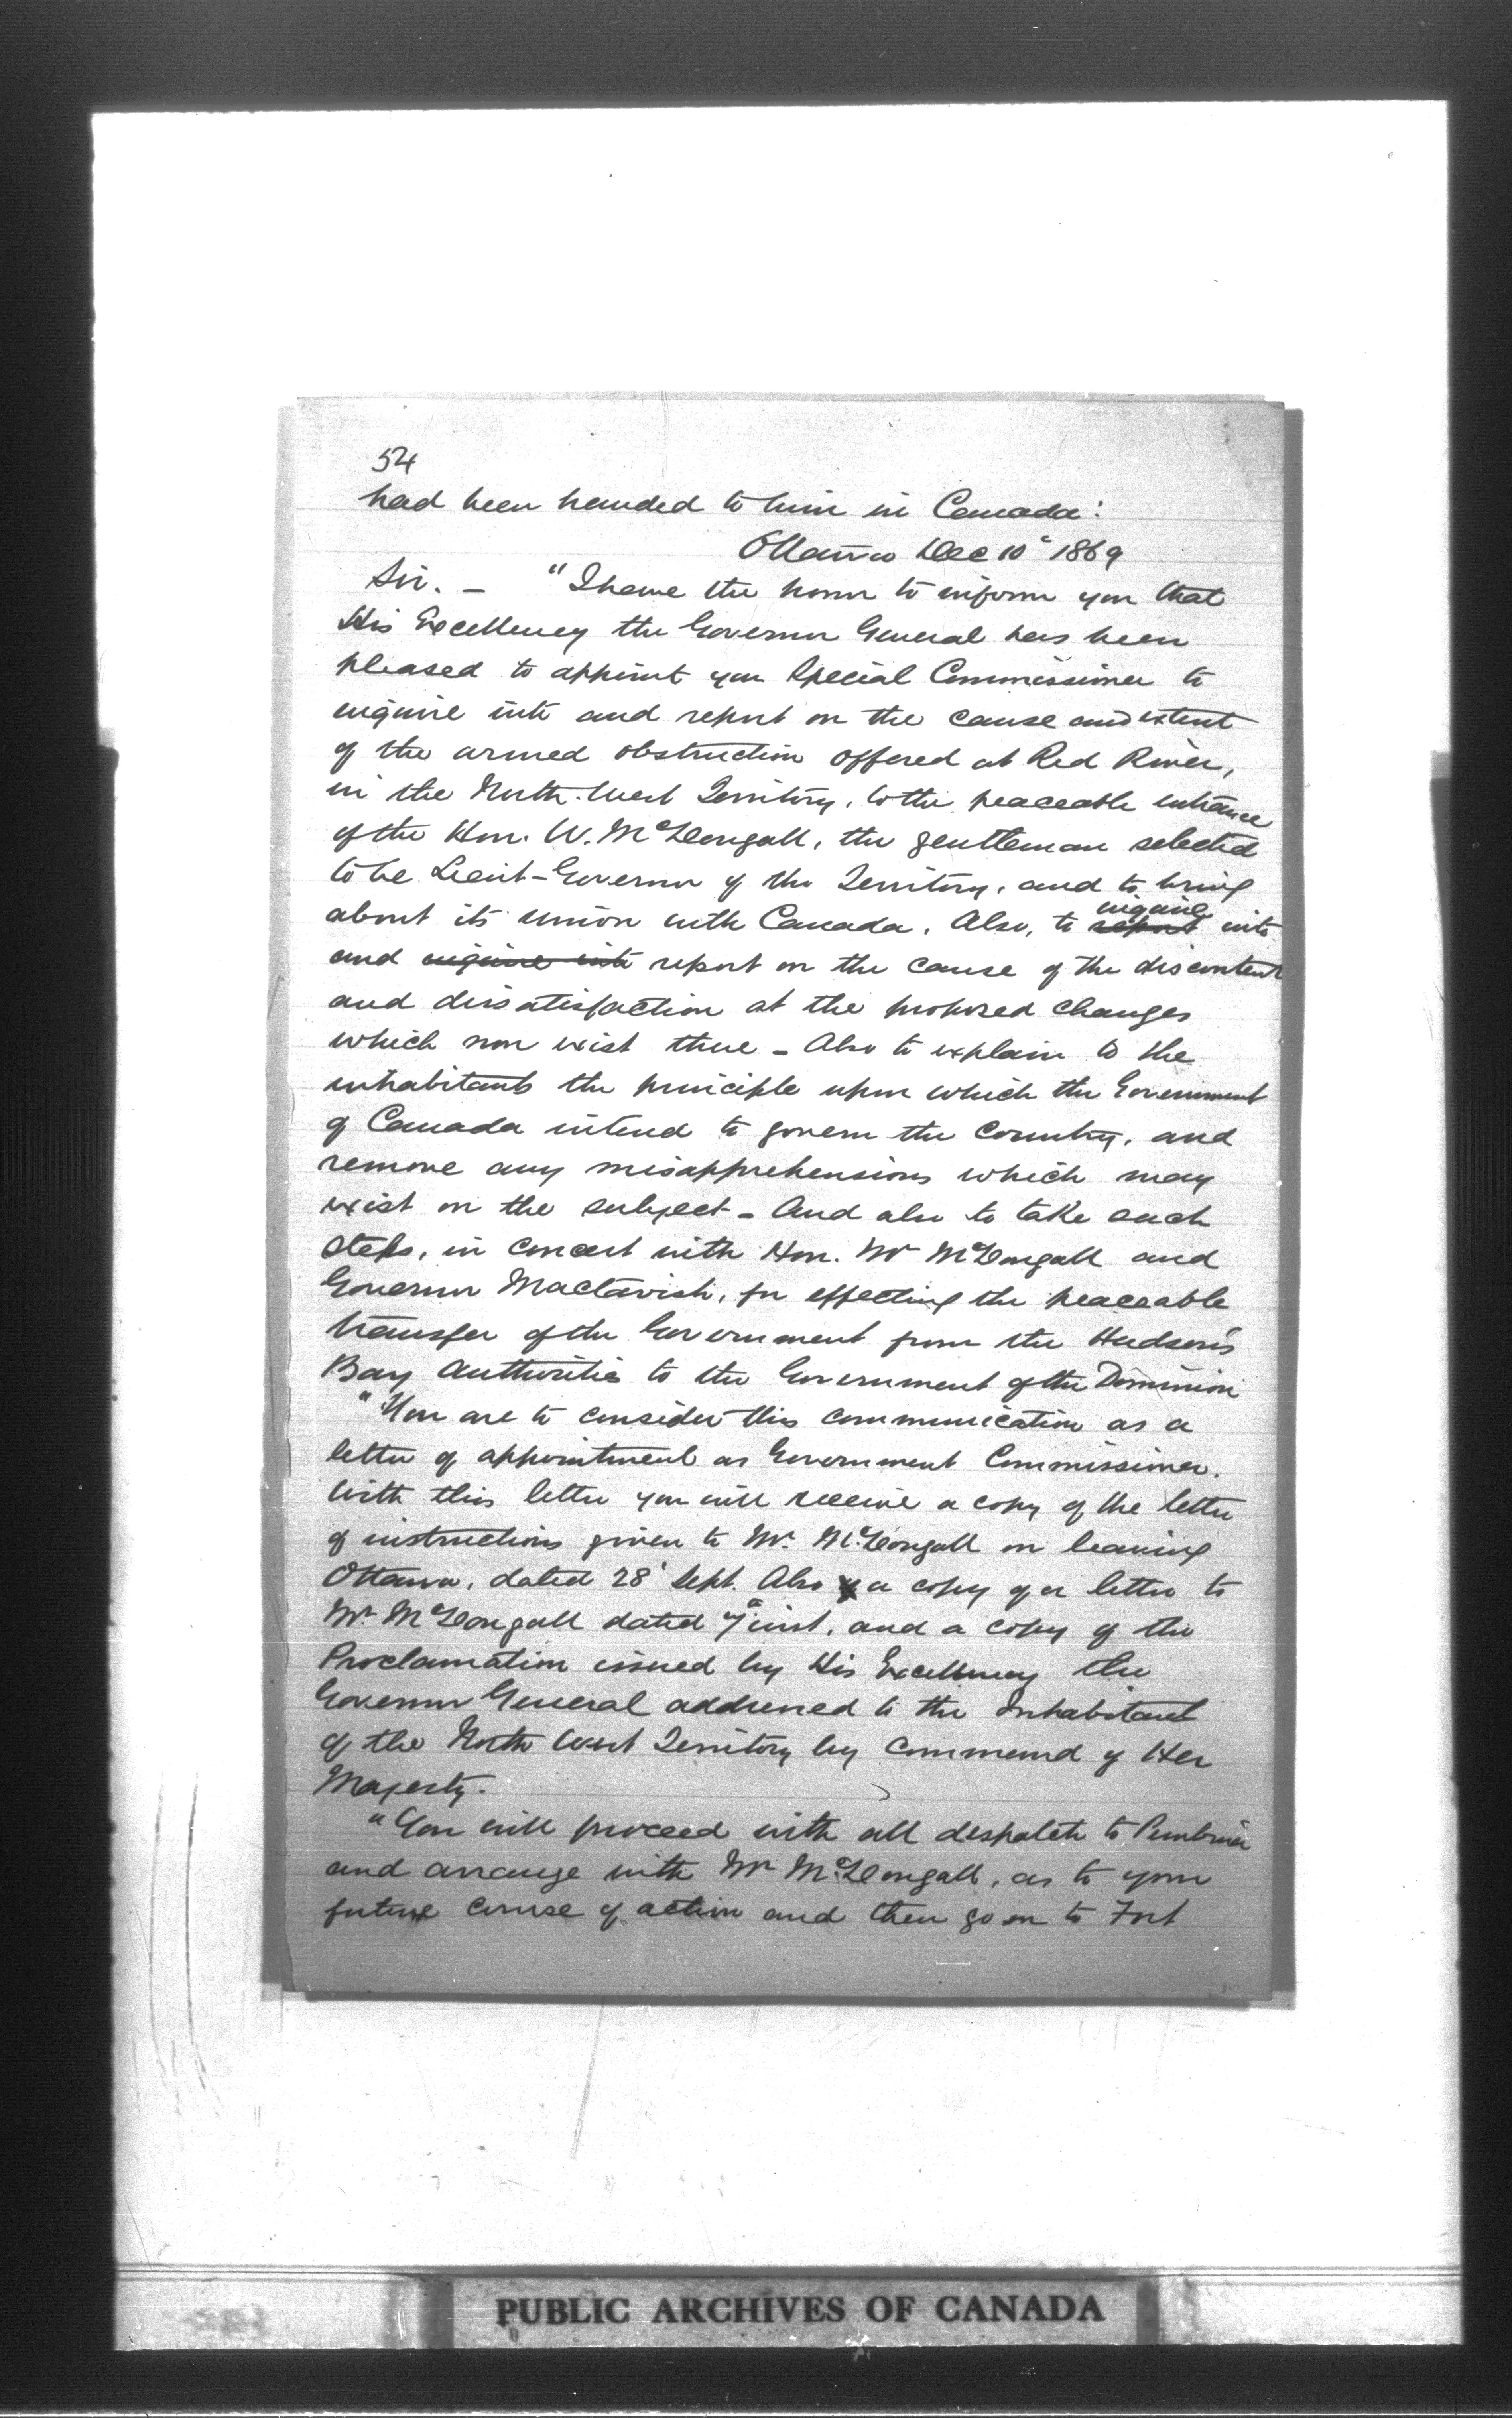 54
had been handed to him in Canada:
Ottawa Dec 10" 1869
Sir. — "I have the honor to inform you that
His Excellency the Governor General has been
pleased to appoint you Special Commissioner to
inquire into and report on the cause and extent
of the armed obstruction offered at Red River,
in the North-West Territory, to the peaceable entrance
of the Hon. W. McDougall, the gentleman selected
to be Lieut-Governor of the Territory, and to bring
about its union with Canada. Also, to report inquire into
and inquire into report on the cause of the discontent
and dissatisfaction at the proposed changes
which now exist there - Also to explain to the
inhabitants the principle upon which the Government
of Canada intend to govern the country, and
remove any misapprehensions which may
exist on the subject - And also to take such
steps, in concert with Hon. Mr McDougall and
Governor Mactavish, for effecting the peaceable
transfer of the Government from the Hudson's
Bay Authorities to the Government of the Dominion
"You are to consider this communication as a
letter of appointment as Government Commissioner.
With this letter you will receive a copy of the letter
of instructions given to Mr. McDougall on leaving
Ottawa, dated 28' Sept. Also a copy of a letter to
Mr. McDougall dated 7" inst. and a copy of the
Proclamation issued by His Excellency the
Governor General addressed to the Inhabitant
of the North West Territory by command of Her
Majesty.
"You will proceed with all despatch to Pembina
and arrange with Mr McDougall, as to your
future course of action and then go on to Fort
PUBLIC ARCHIVES OF CANADA